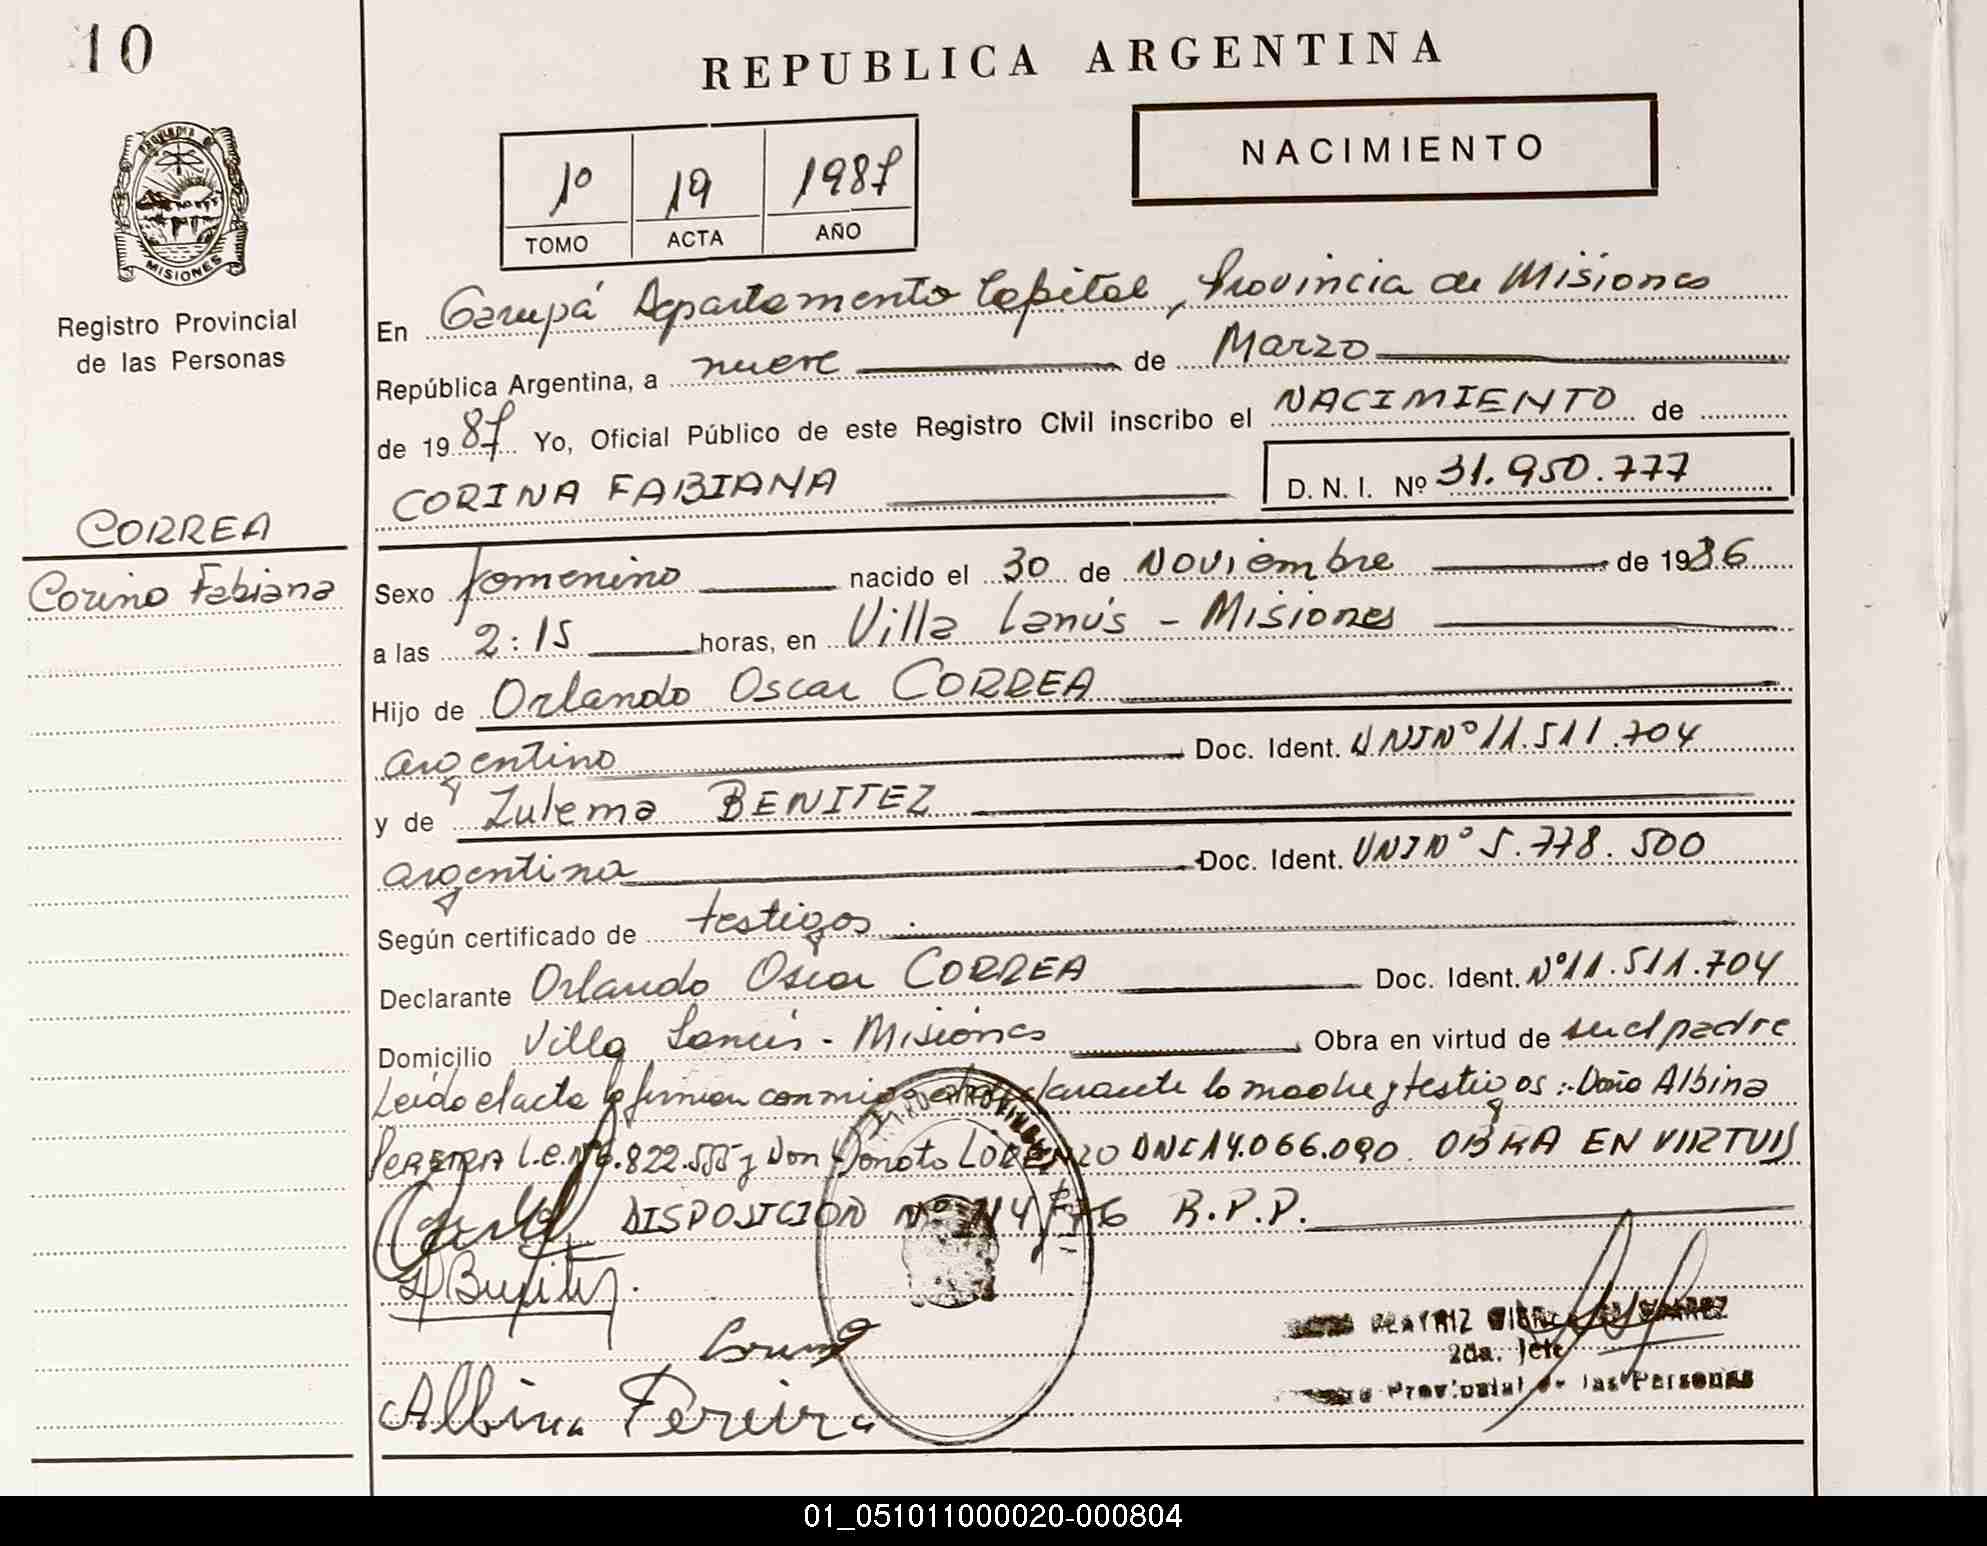 10
REPUBLICA ARGENTINA
NACIMIENTO
1º 19 1987
TOMO ACTA AÑO
PROVINCIA DE
MISIONES
Registro Provincial
de las Personas
CORREA
Corina Fabiana
En Garupá Departamento Capital, Provincia de Misiones
República Argentina, a nueve de Marzo
de 1987 Yo, Oficial Público de este Registro Civil inscribo el NACIMIENTO de
CORINA FABIANA D. N. I. Nº 31.950.777
Sexo femenino nacido el 30 de Noviembre de 1986
a las 2:15 horas, en Villa Lanús - Misiones
Hijo de Orlando Oscar CORREA
argentino Doc. Ident. DNI Nº 11.511.704
y de Zulema BENITEZ
argentina Doc. Ident. DNI Nº 5.778.500
Según certificado de testigos.
Declarante Orlando Oscar CORREA Doc. Ident. Nº 11.511.704
Domicilio Villa Lanús - Misiones Obra en virtud de ser el padre
Leído el acta la firman conmigo el declarante la madre y testigos: Doña Albina
PEREIRA L.E. Nº 6.822.555 y Don Donato LORENZO DNI 14.066.090 OBRA EN VIRTUD
DISPOSICION Nº R.P.P.
Albina Pereira
BEATRIZ
2da. Jefe
Provincial de las Personas
01_051011000020-000804